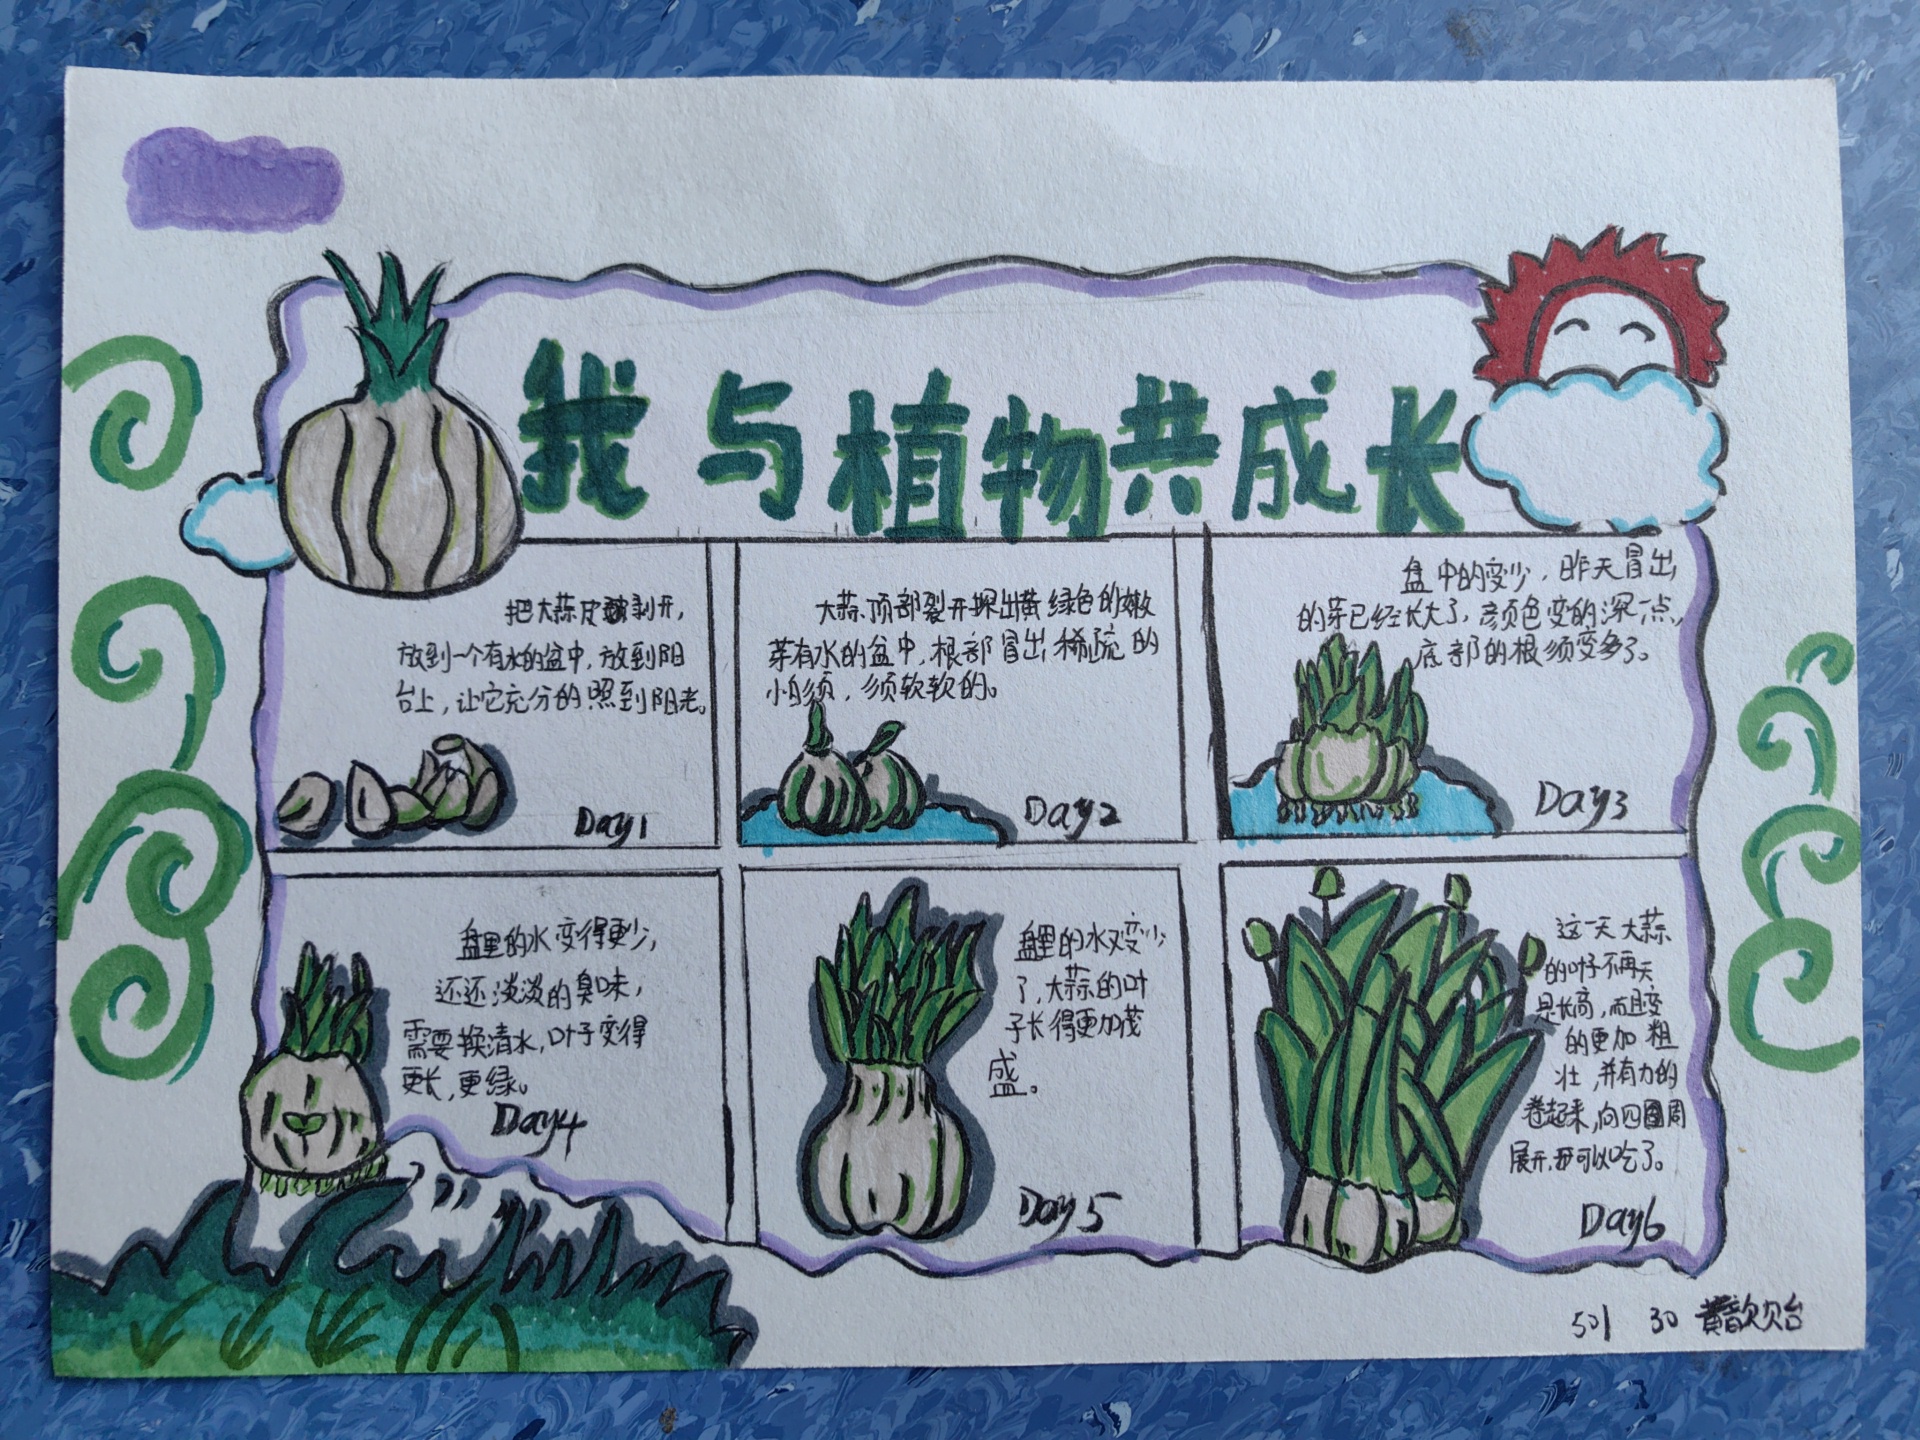 我与植物共成长
把大蒜皮剥开,
放到一个有水的盆中,放到阳
台上,让它充分的照到阳光。
Day1
大蒜顶部裂开探出黄绿色的嫩
芽有水的盆中,根部冒出稀疏的
须,须软软的。
Day2
盘中的变少,昨天冒出
的芽已经长大了,颜色变的深一点,
底部的根须变多了。
Day3
盘里的水变得更少,
还还淡淡的臭味,
需要换清水,叶子变得
更长,更绿。
Day4
盘里的水又变少
了,大蒜的叶
子长得更加茂
盛。
Day5
这一天大蒜
的叶子不再天
是长高,而且变
的更加粗
壮,并有力的
卷起来,向四周
展开,可以吃了。
Day6
501 30 黄